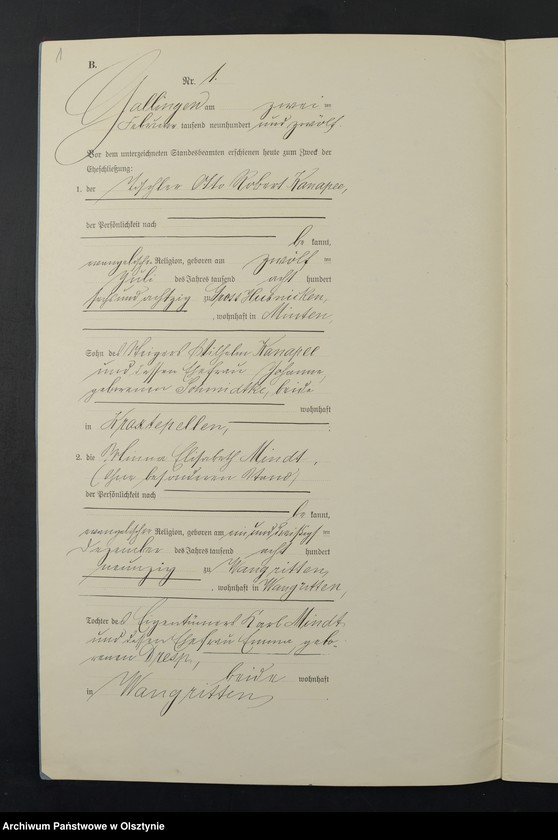 1
B.
Nr. 1.
Gallingen am zwei ten
Februar tausend neunhundert und zwölf
Vor dem unterzeichneten Standesbeamten erschienen heute zum Zweck der
Eheschließung:
1. der Tischler Otto Robert Kanapee,
der Persönlichkeit nach
be kannt,
evangelischer Religion, geboren am zwölf ten
Juli des Jahres tausend acht hundert
sechsundachtzig zu Gross Hubnicken,
, wohnhaft in Minten,
Sohn des Steigers Wilhelm Kanapee
und dessen Ehefrau Johanne,
geborenen Schmidtke, beide
wohnhaft
in Kraxtepellen,
2. die Minna Elisabeth Mindt,
(ohne besonderen Stand)
der Persönlichkeit nach
be kannt,
evangelischer Religion, geboren am einunddreißigsten
Dezember des Jahres tausend acht hundert
neunzig zu Wangritten,
, wohnhaft in Wangritten,
Tochter des Eigentümers Karl Mindt
und dessen Ehefrau Emma, gebo-
renen
beide wohnhaft
in Wangritten
Archiwum Państwowe w Olsztynie